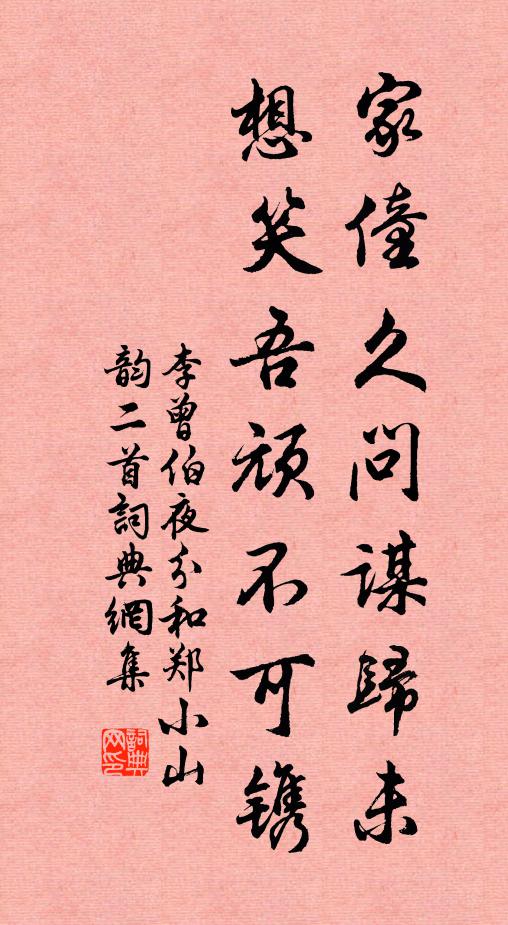 家僮久问謀歸未
想笑吾顽不可镌
李曾伯夜分和郑小山
韵二首詞典網集
詞典网印